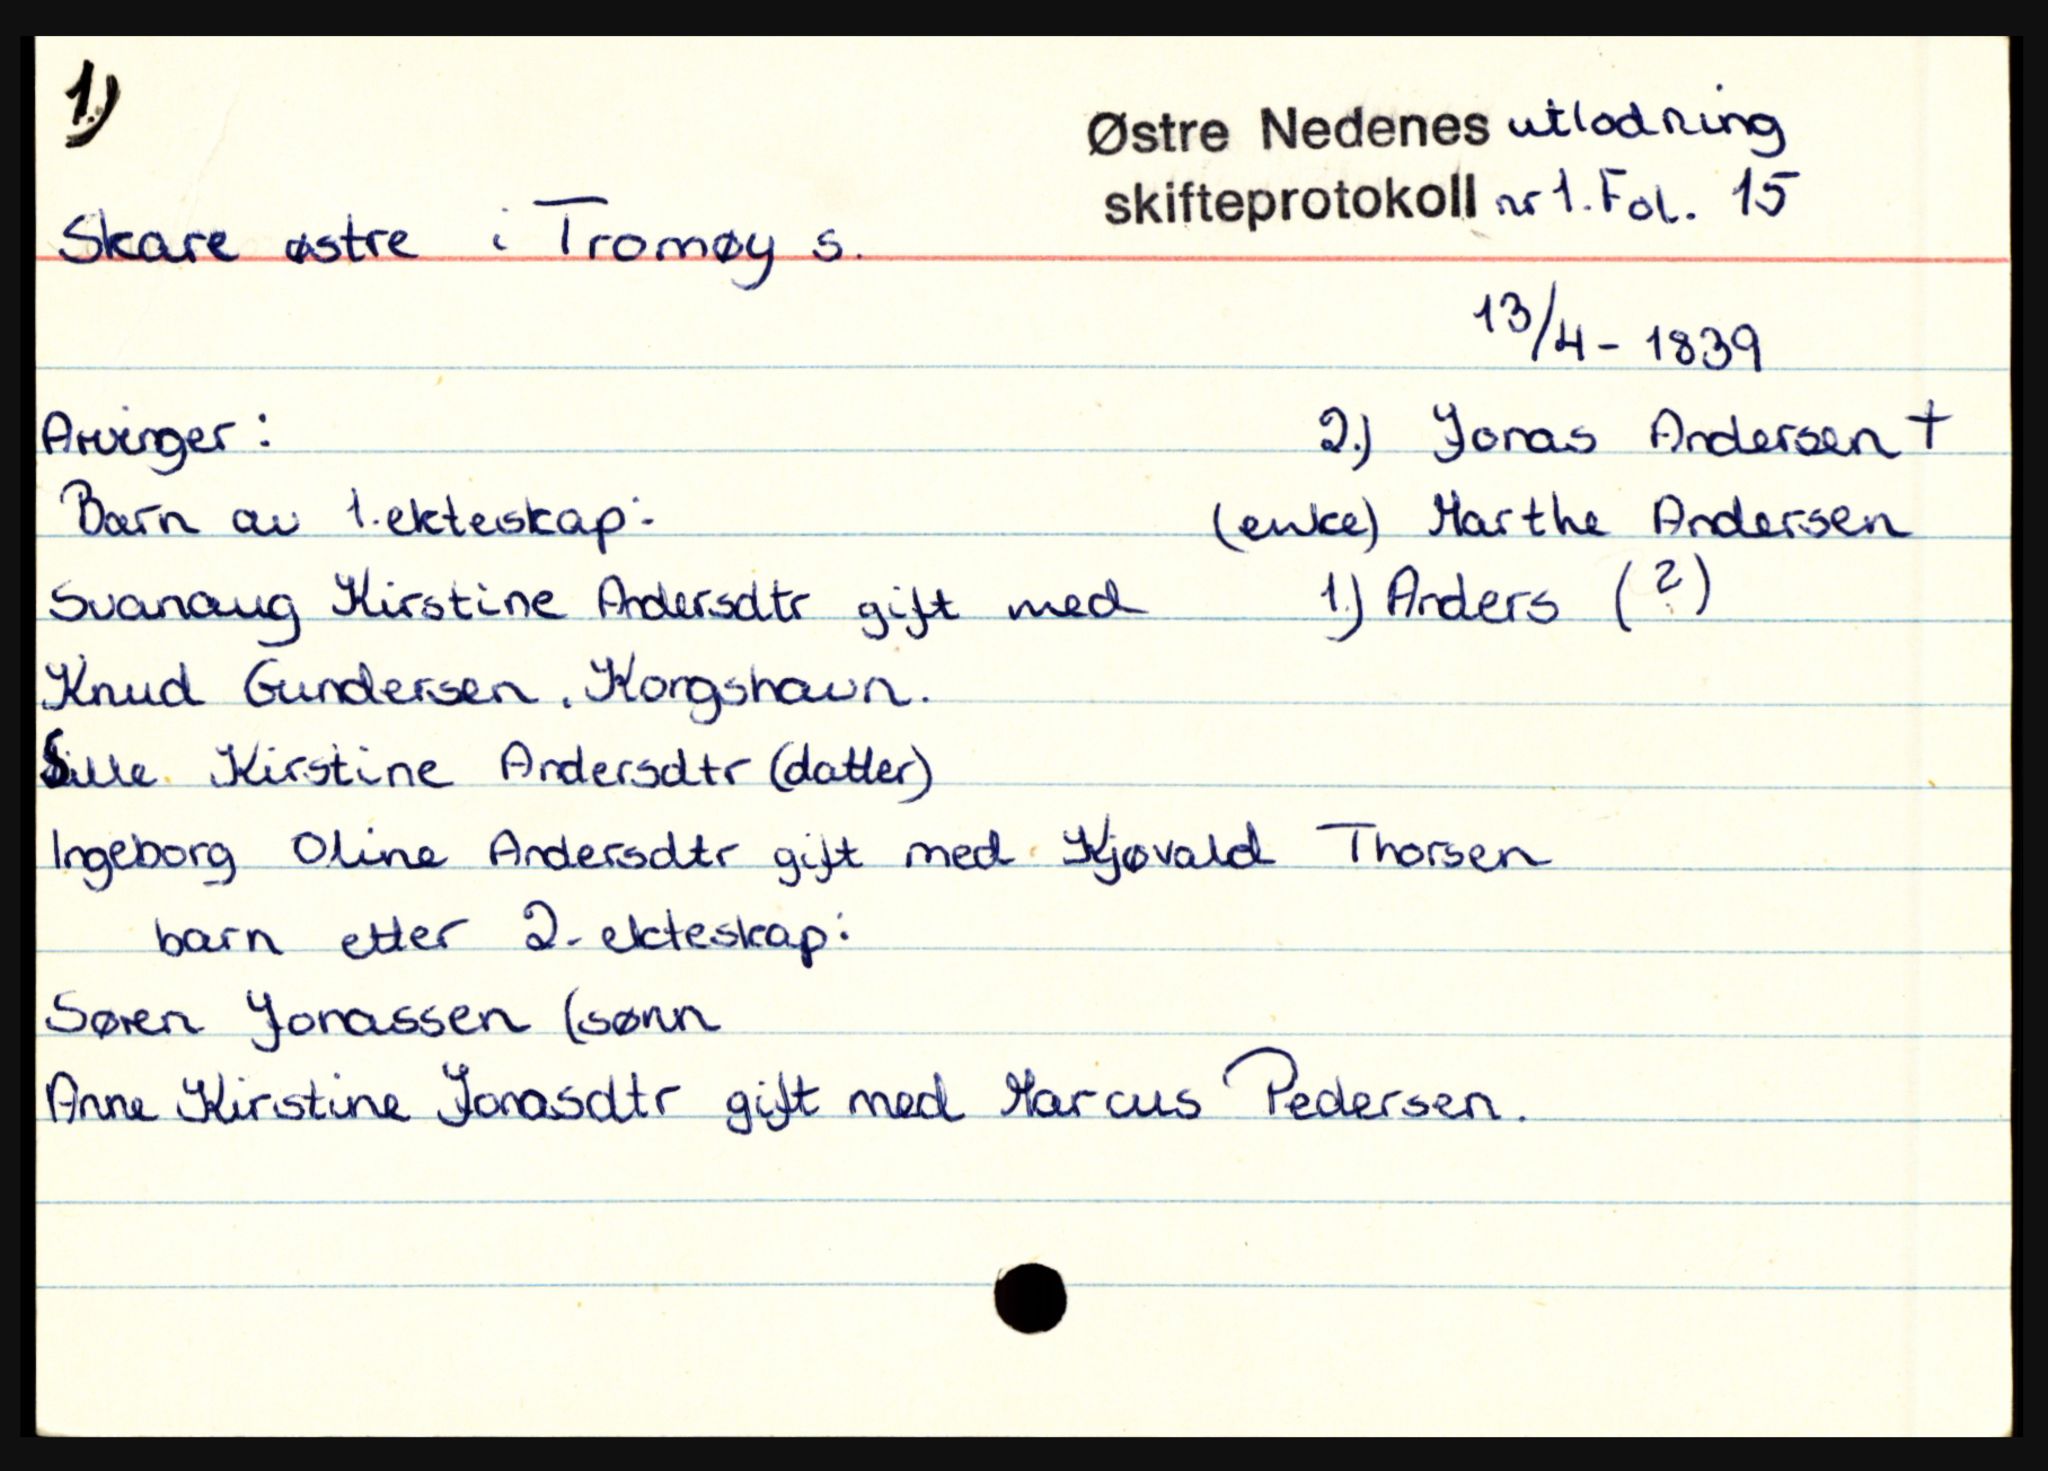 1.)
Østre Nedenes utlodning
skifteprotokoll nr 1. Fol. 15
Skare østre i Tromøy s.
13/4 - 1839
Arvinger:
2.) Jonas Andersen †
Barn av 1. ekteskap:
(enke) Marthe Andersen
Svanaug Kirstine Andersdtr gift med
1.) Anders (?)
Knud Gundersen, Korgshavn.
Sille Kirstine Andersdtr (datter)
Ingeborg Oline Andersdtr gift med Kjøvald Thorsen
barn etter 2. ekteskap:
Søren Jonassen (sønn
Anne Kirstine Jonasdtr gift med Marcus Pedersen.